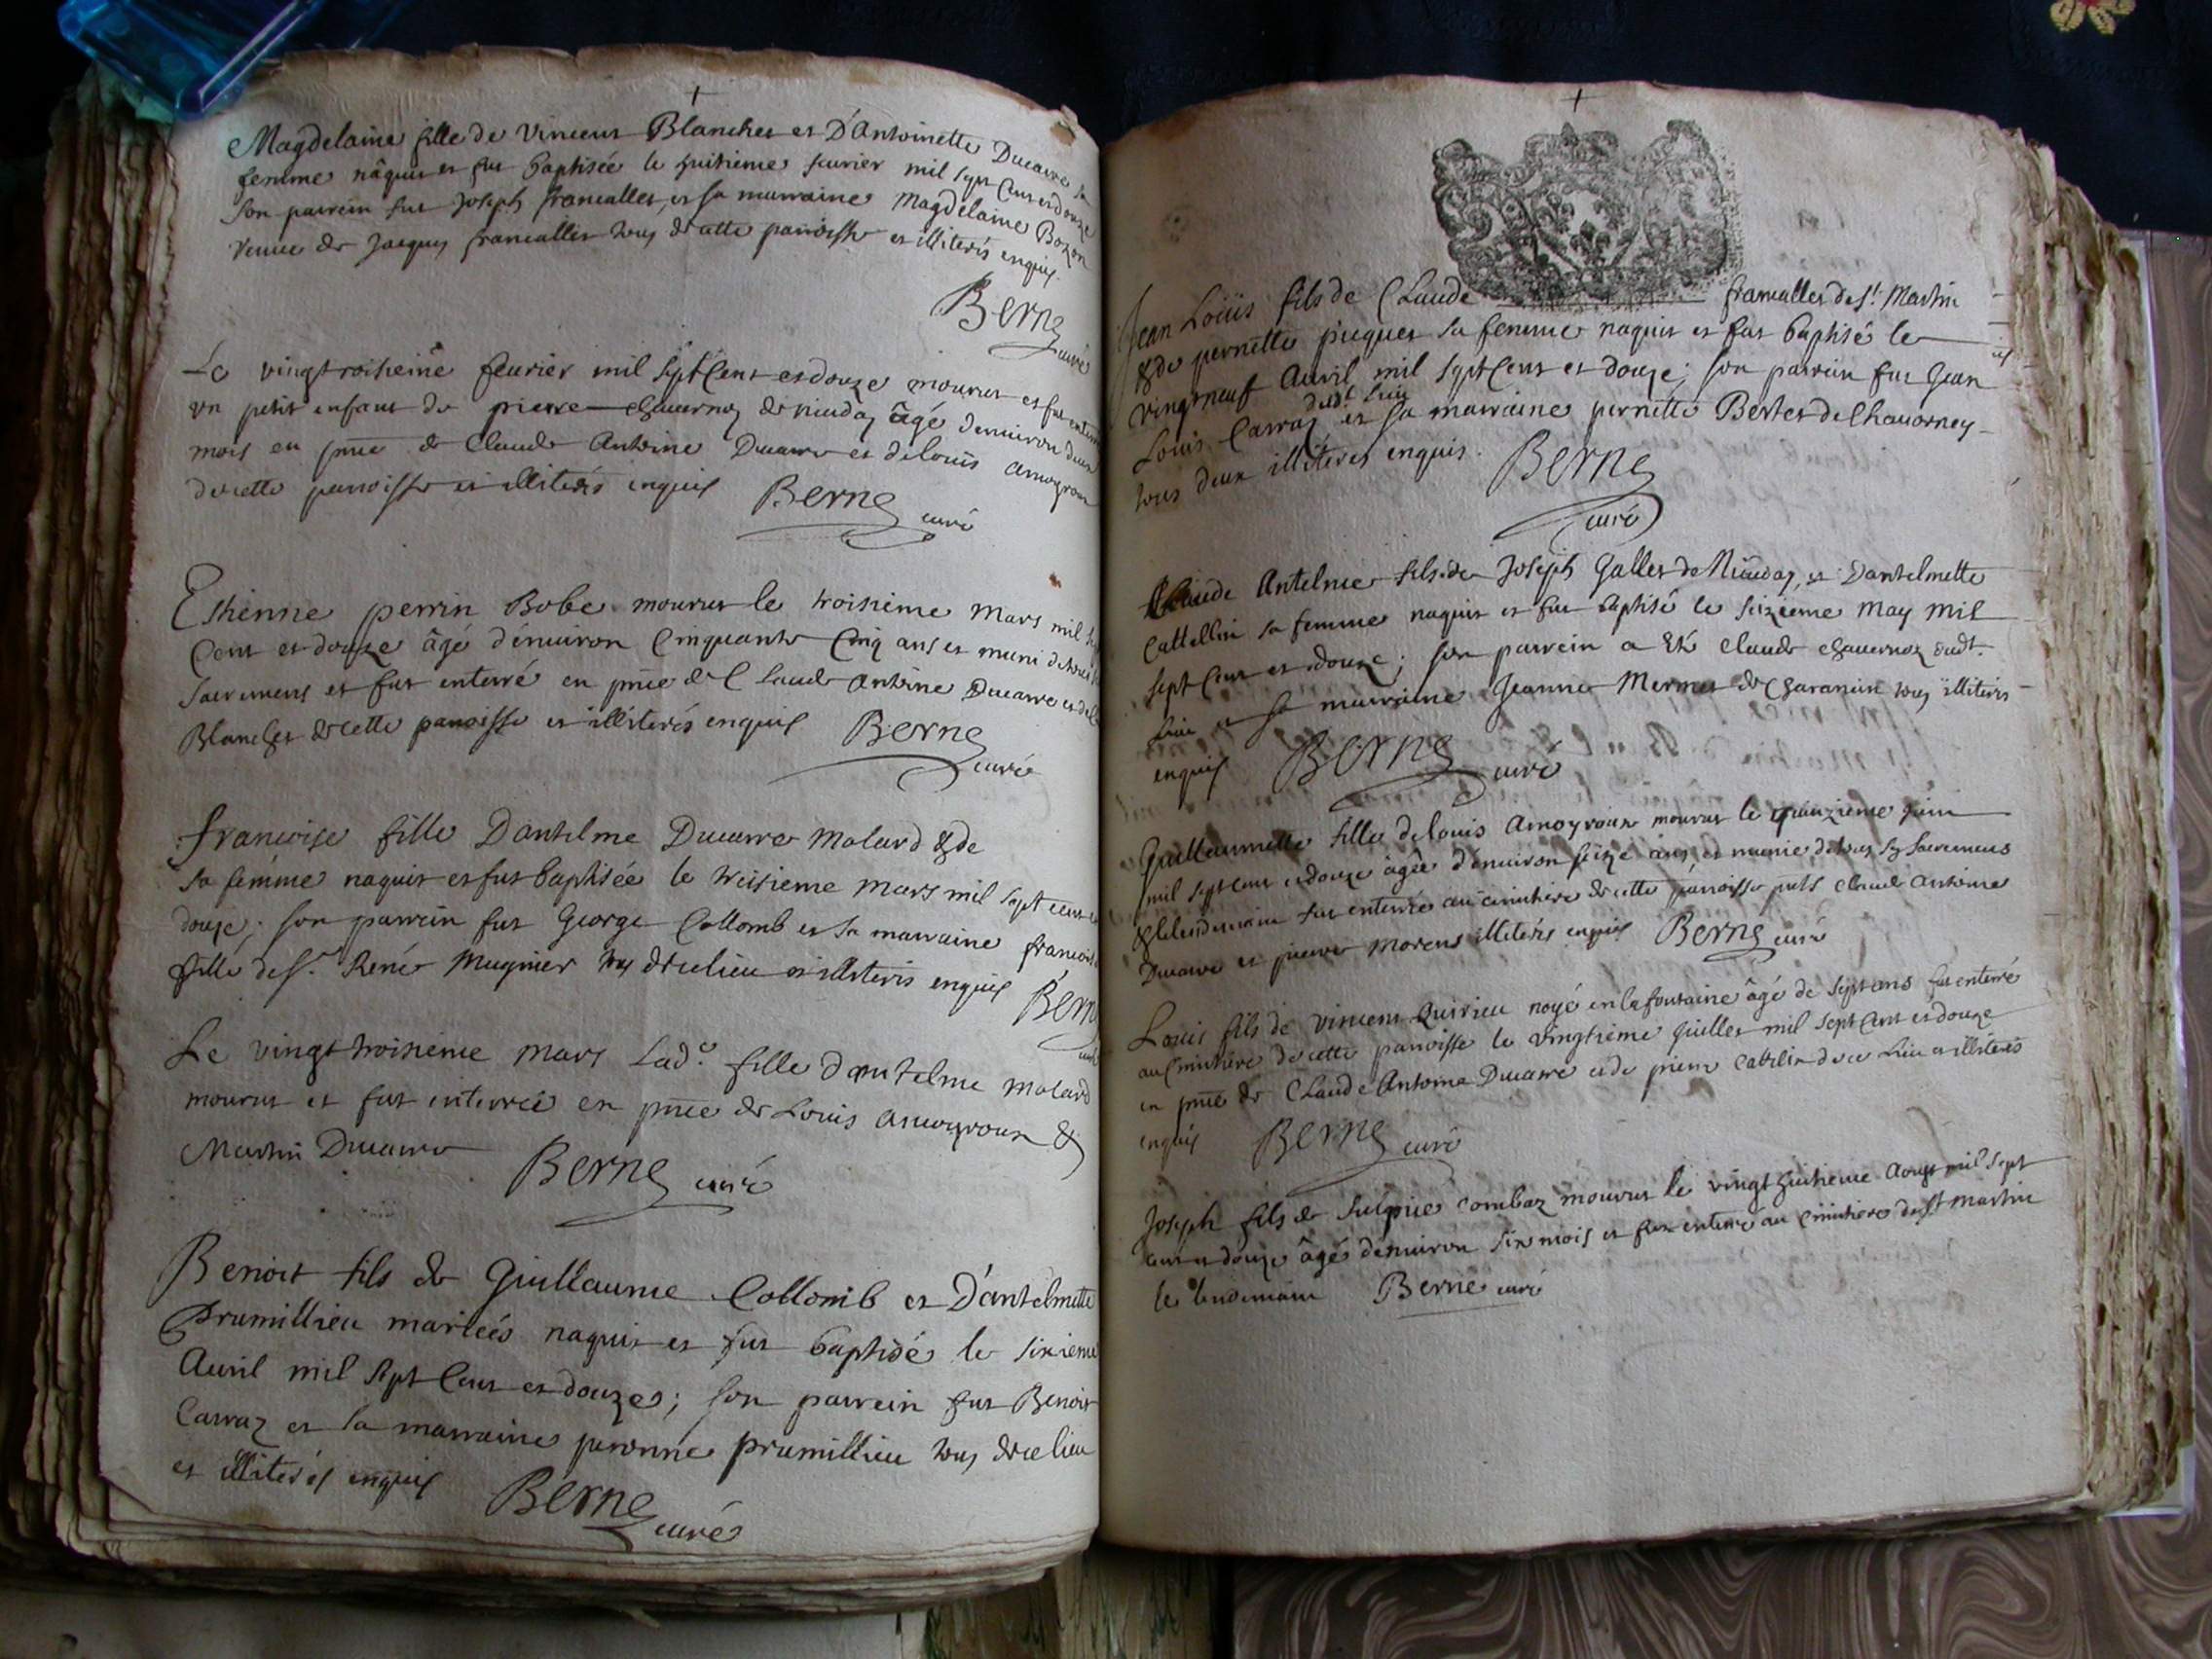 Magdelaine fille de Vincent Blanchet et D'Antoinette Ducarre sa
femme nâquit et fut baptisée le huitieme feurier mil sept Cent et douze
son parrein fut Joseph francallet, et sa marraine Magdelaine Bozon
veuue de Jacques francallet tous de cette parroisse et illiterés enquis
Berne
curé
Le vingt troisieme feurier mil sept Cent et douze mourut et fut enterré
vn petit enfant de pierre chauernoz de âgé denuiron deux
mois en pnce de Claude Antoine Ducarre et de Louis Amoyroux
de cette parroisse et illiterés enquis Berne curé
Etienne perrin Bobe mourut le troisieme Mars mil
Cent et douze âgé d'enuiron Cinquante Cinq ans et muni de tous
sacremens et fut enterré en pnce de Claude Antoine Ducarre et de
Blanchet de cette parroisse et illiterés enquis Berne
curé
francoise fille Dantelme Ducarre Molard & de
sa femme naquit et fut baptisée le treisieme Mars mil sept cent
douze; son parrein fut George Collomb et sa marraine francoise
fille de Sr. René Mugnier tous de ce lieu et illiterés enquis Berne
curé
Le vingt troisieme Mars Lad.e fille d'antelme Molard
mourut et fut enterrée en pnce de Louis Amoyroux &
Martin Ducarre
Berne curé
Benoit fils de Guillaume Collomb et D'antelmette
Prumillieu mariés naquit et fut baptisé le sixieme
Auril mil sept Cent et douze; son parrein fut Benoit
Carraz et sa marraine peronne prumillieu tous de ce lieu
et illiterés enquis Berne
curé
Jean Loüis fils de Claude francallet de St. Martin
& de pernette picquet sa femme naquit et fut baptisé le
vingt neuf Auril mil sept Cent et douze; son parrein fut Jean
dudt. lieu
Louis Carraz et sa marraine pernette Bertet de Chauorney
tous deux illiterés enquis. Berne
curé
Claude Antelme fils de Joseph Gallet de, et D'antelmette
Cattellin sa femme naquit et fut baptisé le seizieme May mil
sept Cent et douze; son parrein a eté claude chauernoz dudt.
lieu et sa marraine Jeanne Mermet de Charancin tous illiterés
enquis Berne curé
Guillaumette fille de Louis Amoyroux mourut le quinzieme juin
mil sept cent et douze âgée d'enuiron seize ans et munie de tous ses sacremens
& le lendemain fut enterrée au cimitiere de cette parroisse pnts Claude Antoine
Ducarre et pierre Morens illiterés enquis Berne curé
Louis fils de vincent Quirieu noyé en la fontaine âgé de sept ans fut enterré
au cimitiere de cette parroisse le vingtieme juillet mil sept Cent et douze
en pnce de Claude Antoine Ducarre et de pierre Cattelin de ce lieu et illiterés
enquis Berne curé
Joseph fils de Sulpice Combaz mourut le vingt huitieme Aoust mil sept
cent et douze âgé d'enuiron six mois et fut enterré au cimitiere de St martin
le lendemain Berne curé